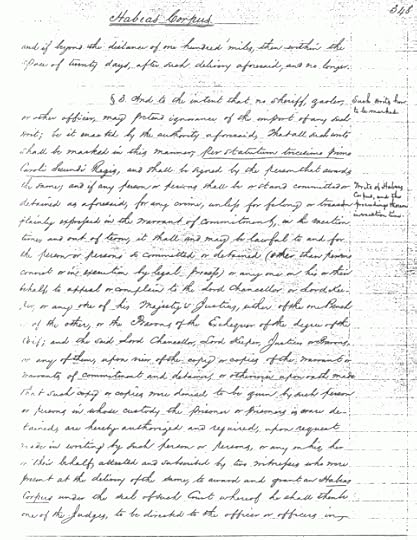 348
Habeas Corpus
and if beyond the distance of one hundred miles, then within the
space of twenty days, after such delivery aforesaid, and no longer.
§ 3. And to the intent that no sheriff, gaoler
or other officer, may pretend ignorance of the import of any such
writ; be it enacted by the authority aforesaid, That all such writs
shall be marked in this manner, Per statutum tricesimo primo
Caroli Secundi Regis, and shall be signed by the person that awards
the same; and if any person or persons shall be or stand committed or
detained as aforesaid, for any crime, unless for felony or treason
plainly expressed in the warrant of commitment, in the vacation
time and out of term, it shall and may be lawful to and for
the person or persons so committed or detained (other than persons
convict or in execution by legal process) or any one in his or their
behalf to appeal or complain to the Lord Chancellor or Lord Kee-
per, or any one of his Majesty's Justices, either of the one Bench
of the other, or the Barons of the Exchequer of the degree of the
Coif; and the said Lord Chancellor, Lord Keeper, Justices or Barons,
or any of them, upon view of the copy or copies of the warrant or
warrants of commitment and detainer, or otherwise upon oath made
that such copy or copies were denied to be given by such person
or persons in whose custody the prisoner or prisoners is or are de-
tained, are hereby authorized and required, upon request
made in writing by such person or persons, or any on his, her
or their behalf, attested and subscribed by two witnesses who were
present at the delivery of the same, to award and grant an Habeas
Corpus under the seal of such Court whereof he shall then be
one of the Judges, to be directed to the officer or officers in
Such writs how
to be marked.
Writs of Habeas
Corpus, and the
proceedings thereon
in vacation time.